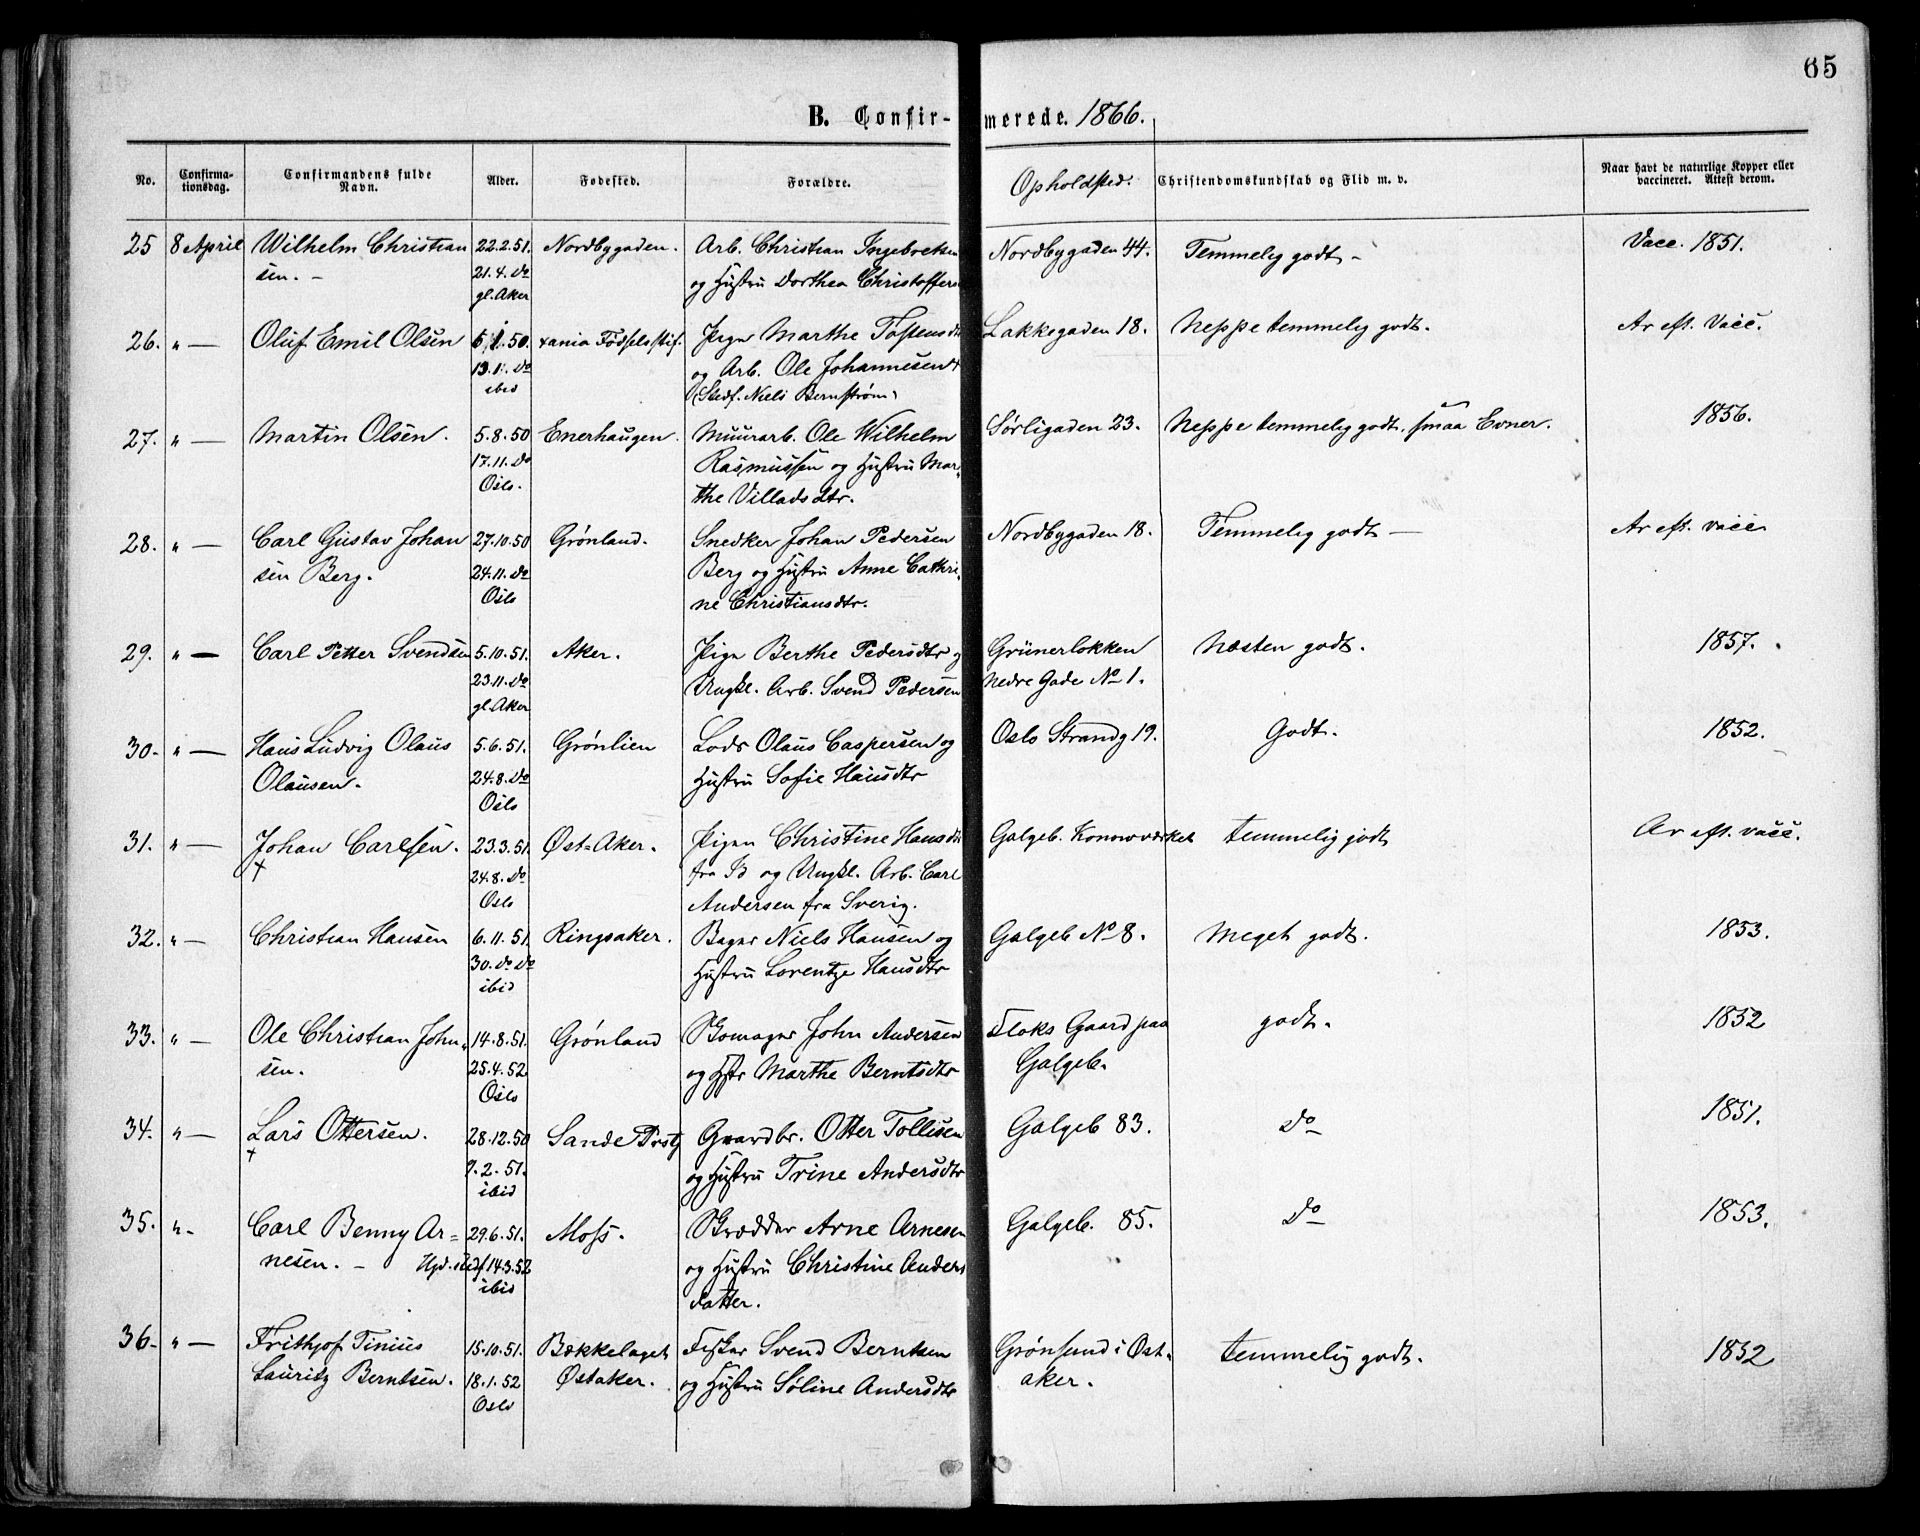 65
B. Confirmerede. 1866.
No. Confirmationsdag. Confirmandens fulde Navn. Alder. Fødested. Forældre. Opholdsted. Christendomskundskab og Flid m. v. Naar havt de naturlige Kopper eller vaccineret. Attest derom.
25 8 April Wilhelm Christian 22.2.51. Nordbygaden. Arb. Christian Nordbygaden 44. Temmelig godt – Vacc. 1851.
sen. – 21.4. Do og Hustru Dorthea Christoffers
gl. Aker
26. " — Oluf Emil Olsen 6.1.50. xania Fødselsstif. Pige Marthe Tostensdt Lakksgaden 18. Neppe temmelig godt. Ar eft. Vacc.
13.1. Do og Arb. Ole Johannesen
ibid (Stedf. Niels Bernstrøm)
27. " — Martin Olsen. 5.8.50 Enerhaugen. Muurarb. Ole Wilhelm Sørligaden 23. Neppe temmelig godt, smaa Evner. 1856.
17.11. Do Rasmussen og Hustru Mar-
Oslo. the Villadsdtr.
28. " — Carl Gustav Johan 27.10.50 Grønland. Snedker Johan Pedersen Nordbygaden 18. Temmelig godt — Ar eft. vacc
sen Berg. 24.11. Do Berg og Hustru Anne Cathri-
Oslo ne Christiansdtr.
29. " — Carl Petter Svendsen 5.10.51. Aker. Pige Berthe Pedersdtr og Grünerløkken Næsten godt. 1857.
23.11. Do Ungkl. Arb. Svend Pedersen Nedre Gade No 1.
gl. Aker
30. " — Hans Ludvig Olaus 5.6.51. Grønlien Lods Olaus Caspersen og Oslo Strandg 19. Godt. 1852.
Olausen. 24.8. Do Hustru Sofie Hansdtr
Oslo
31. " — Johan Carlsen. 23.3.51. Øst-Aker. Pigen Christine Hansdt Galgeb. Konowværket temmelig godt Ar eft. vacc.
+ 24.8. Do fra Id og Ungkl. Arb. Carl
Oslo Andersen fra Sverig.
32. " — Christian Hansen 6.11.51. Ringsaker. Bager Niels Hansen og Galgeb No 8. Meget godt. 1853.
30. Do Do Hustru Lorentze Hansdtr
ibid
33. " — Ole Christian John- 14.8.51. Grønland Skomager John Andersen Floks Gaard paa godt. 1852
sen. 25.4.52. og Hstr Marthe Berntsdtr Galgeb.
Oslo
34. " — Lars Ottersen. 28.12.50 Sande Prstg Gaardbr. Otter Tollisen Galgeb 83. Do 1851.
+ 9.2.51. og Hustru Trine Andersdtr
ibid
35. " - Carl Benny Ar- 29.6.51. Moss. Skrædder Arne Arnesen Galgeb. 85. Do 1853.
nesen. – 14.3.52 og Hustru Christine Anders
ibid datter.
36. " — Frithjof Tinius 15.10.51. Bækkelaget Fisker Svend Berntsen Grønsund i Øst- temmelig godt. 1852
Lauritz Berntsen. 18.1.52 Østaker. og Hustru Søline Andersdtr aker.
Oslo